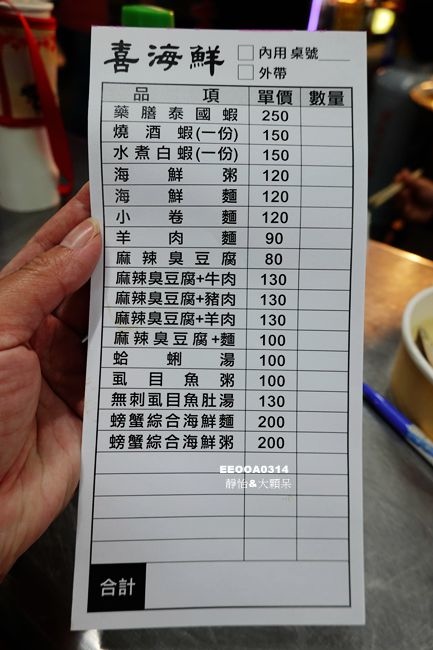 喜海鮮
□ 內用 桌號
□ 外帶
品項 單價 數量
藥膳泰國蝦 250
燒酒蝦(一份) 150
水煮白蝦(一份) 150
海鮮粥 120
海鮮麵 120
小卷麵 120
羊肉麵 90
麻辣臭豆腐 80
麻辣臭豆腐+牛肉 130
麻辣臭豆腐+豬肉 130
麻辣臭豆腐+羊肉 130
麻辣臭豆腐+麵 100
蛤蜊湯 100
虱目魚粥 100
無刺虱目魚肚湯 130
螃蟹綜合海鮮麵 200
螃蟹綜合海鮮粥 200
EEOOA0314
靜怡&大顆呆
合計